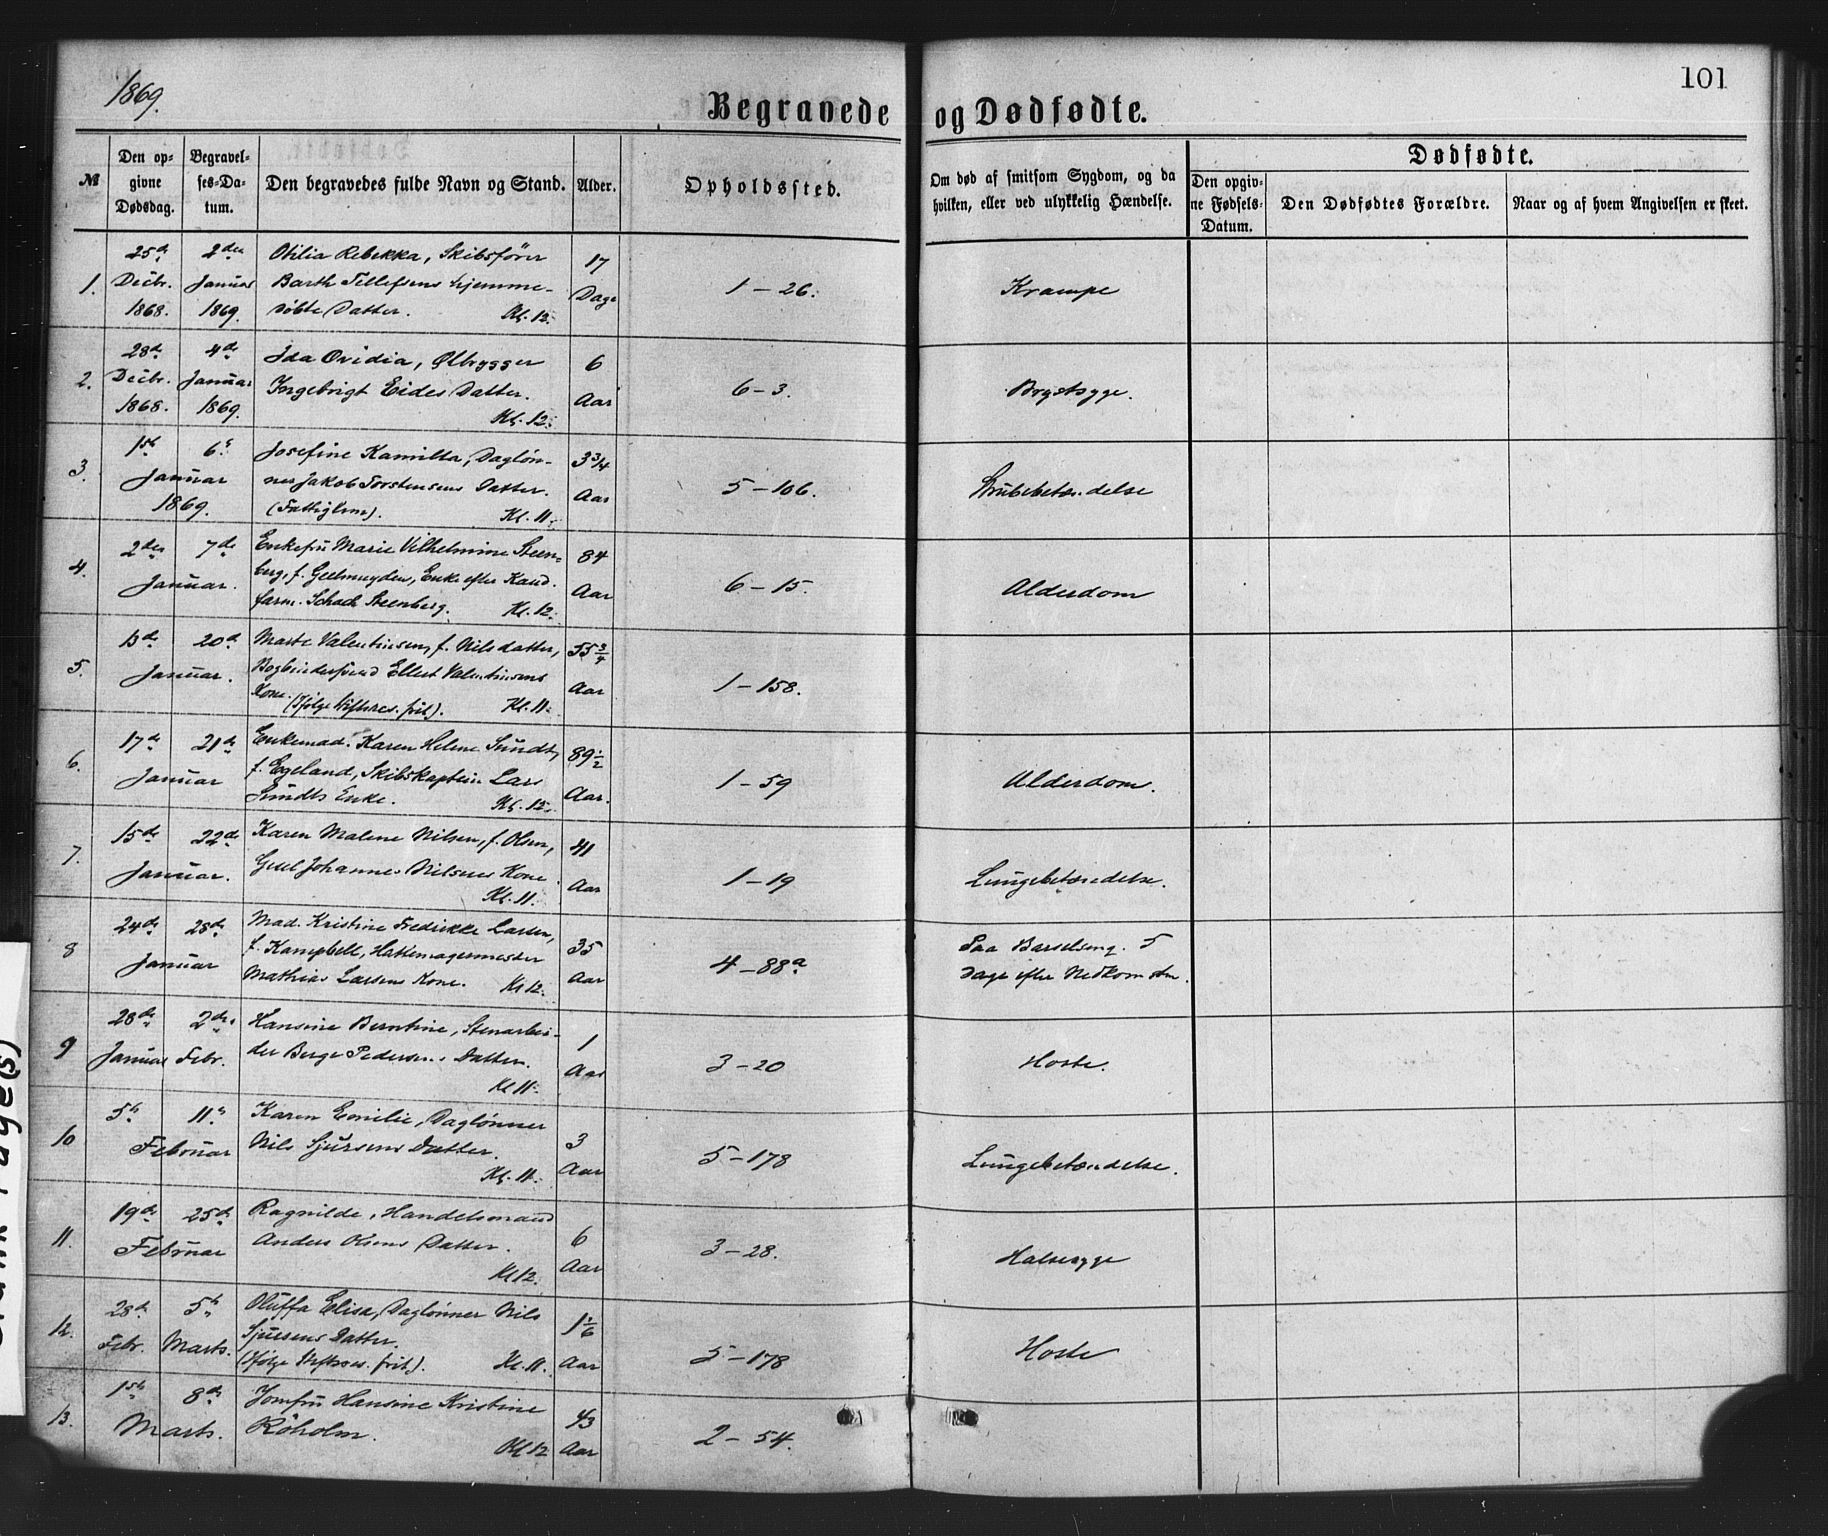 1869.
101
Begravede og Dødfødte.
№
Den opgivne Dødsdag.
Begravelses-Datum.
Den begravedes fulde Navn og Stand.
Alder.
Opholdssted.
Om død af smitsom Sygdom, og da hvilken, eller ved ulykkelig Hændelse.
Dødfødte.
Den opgivne Fødsels-Datum.
Den Dødfødtes Forældre.
Naar og af hvem Angivelsen er skeet.
1. 25de Decbr. 1868. 2den Januar 1869. Otilia Rebekka, Skibsfører 17 Dage 1 – 26. Krampe
Barth Tellefsens hjemme-
døbte Datter. Kl. 12.
2. 28de Decbr. 1868. 4de Januar 1869. Ida Ovidia, Ølbrygger 6 Aar 6 – 3. Brystsyge.
Ingebrigt Eides Datter.
Kl. 12.
3. 1ste 6te Januar 1869. Josefine Kamilla, Dagløn- 3 3/4 Aar 5 – 106. Strubebetændelse
ner Jakob Torstensens Datter.
(Fattiglem). Kl. 11.
4. 2den 7de Januar. Enkefru Marie Vilhelmine Steen- 84 Aar 6 – 15. Alderdom
berg, f. Geelmuyden, Enke efter Kand.
farm. Schach Steenberg. Kl. 12.
5. 13de 20de Januar. Marte Valentinsen, f. Nilsdatter, 55 3/4 Aar 1 – 158.
Bogbindersvend Ellert Valentinsens
Kone. (Ifølge frit). Kl. 11.
6. 17de 21de Januar Enkemad. Karen Helene Sundt, 89 1/2 Aar. 1 – 59 Alderdom.
f. Egeland, Skibskaptein Lars
Sundts Enke. Kl. 12.
7. 15de 22de Januar. Karen Malene Nilsen, f. Olsen, 41 Aar 1 – 19 Lungebetændelse.
Johannes Nilsens Kone
Kl. 11.
8 24de 28de Januar Mad. Kristine Fredrikke Larsen, 35 Aar 4 – 88a Paa Barselseng. 5
f. Kampbell, Hattemagermester Dage efter Nedkomsten.
Mathias Larsens Kone. Kl 12.
9 28de Januar 2den Febr. Hansine Berntine, Stenarbei- 1 Aar 3 – 20 Hoste.
der Berge Pedersens Datter.
Kl 11.
10 5te 11te Februar Karen Emilie, Daglønner 3 Aar 5 – 178 Lungebetændelse.
Nils Sjursens Datter.
Kl. 11.
11. 19de 25de Februar Ragnilde, Handelsmand 6 Aar 3 – 28. Halssyge
Anders Olsens Datter.
Kl 12.
12. 28de Febr. 5te Marts. Oluffa Elisa, Daglønner Nils 1 1/6 Aar 5 – 178 Hoste
Sjursens Datter.
(Ifølge frit). Kl. 11.
13. 1ste 8de Marts. Jomfru Hansine Kristine 43 Aar 2 – 54.
Röholm.
Kl 12